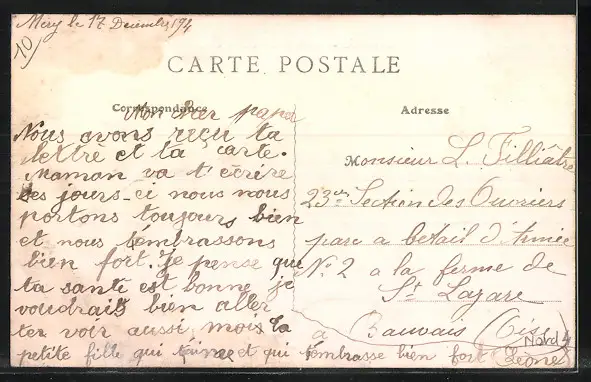 Mery le 17 Décembre 194
10
CARTE POSTALE
Correspondance
Mon cher papa
Nous avons reçu ta
lettre et ta carte.
Maman va t'écrire
ses jours-ci nous nous
portons toujours bien
et nous t'embrassons
bien fort. Je pense que
ta santé est bonne je
voudrais bien aller
te voir aussi, mois ta
petite fille qui t'aime et qui t'embrasse bien fort (Léone)
Adresse
Monsieur L. Filliâtre
23ème Section des Ouvriers
parc a betail d'Armée
N° 2 a la ferme de
St Lazare
à Beauvais (Oise)
Nord 4